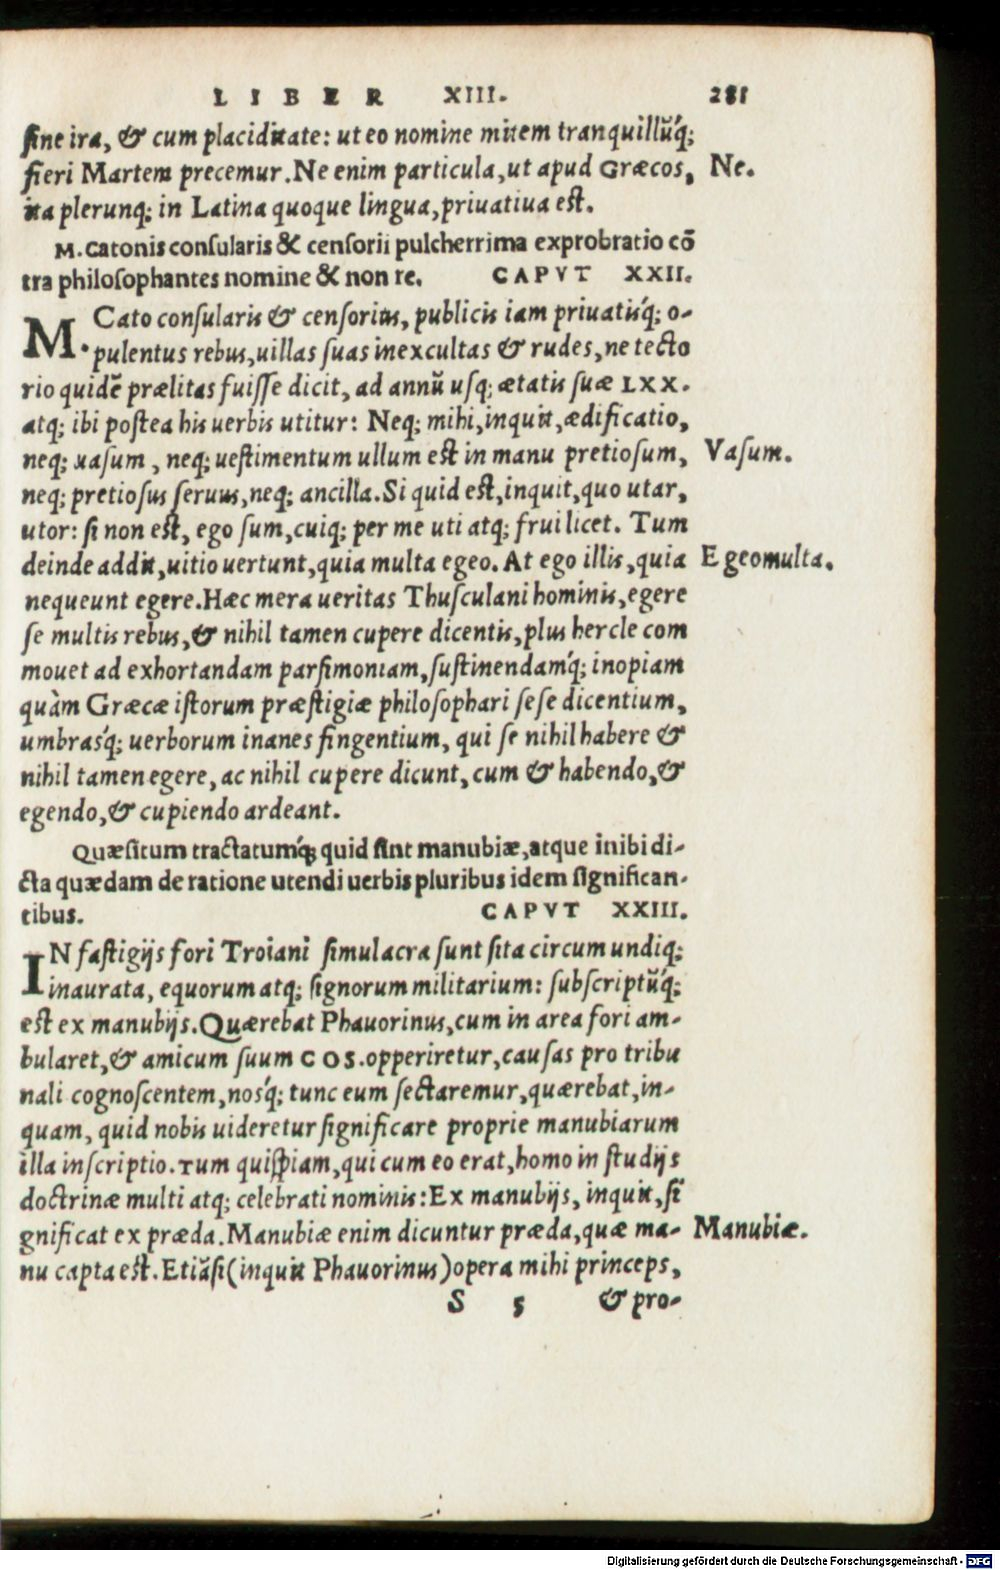 LIBER XIII. 281
sine ira, & cum placiditate: ut eo nomine mitem tranquillũq́;
fieri Martem precemur. Ne enim particula, ut apud Græcos, Ne.
ita plerunq; in Latina quoque lingua, priuatiua est.
M. Catonis consularis & censorii pulcherrima exprobratio cõ
tra philosophantes nomine & non re. CAPVT XXII.
M. Cato consularis & censorius, publicis iam priuatisq́; o-
pulentus rebus, uillas suas inexcultas & rudes, ne tecto
rio quidẽ prælitas fuisse dicit, ad annũ usq; ætatis suæ LXX.
atq; ibi postea his uerbis utitur: Neq; mihi, inquit, ædificatio,
neq; uasum, neq; uestimentum ullum est in manu pretiosum, Vasum.
neq; pretiosus seruus, neq; ancilla. Si quid est, inquit, quo utar,
utor: si non est, ego sum, cuiq; per me uti atq; frui licet. Tum
deinde addit, uitio uertunt, quia multa egeo. At ego illis, quia Egeo multa.
nequeunt egere. Hæc mera ueritas Thusculani hominis, egere
se multis rebus, & nihil tamen cupere dicentis, plus hercle com
mouet ad exhortandam parsimoniam, sustinendamq́; inopiam
quàm Græcæ istorum præstigiæ philosophari sese dicentium,
umbrasq́; uerborum inanes fingentium, qui se nihil habere &
nihil tamen egere, ac nihil cupere dicunt, cum & habendo, &
egendo, & cupiendo ardeant.
Quæsitum tractatumq́; quid sint manubiæ, atque inibi di-
cta quædam de ratione utendi uerbis pluribus idem significan-
tibus. CAPVT XXIII.
IN fastigijs fori Troiani simulacra sunt sita circum undiq;
inaurata, equorum atq; signorum militarium: subscriptũq́;
est ex manubijs. Quærebat Phauorinus, cum in area fori am-
bularet, & amicum suum COS. opperiretur, causas pro tribu
nali cognoscentem, nosq́; tunc eum sectaremur, quærebat, in-
quam, quid nobis uideretur significare proprie manubiarum
illa inscriptio. Tum quispiam, qui cum eo erat, homo in studijs
doctrinæ multi atq; celebrati nominis: Ex manubijs, inquit, si
gnificat ex præda. Manubiæ enim dicuntur præda, quæ ma- Manubiæ.
nu capta est. Etiãsi (inquit Phauorinus) opera mihi princeps,
S 5 & pro-
Digitalisierung gefördert durch die Deutsche Forschungsgemeinschaft - DFG